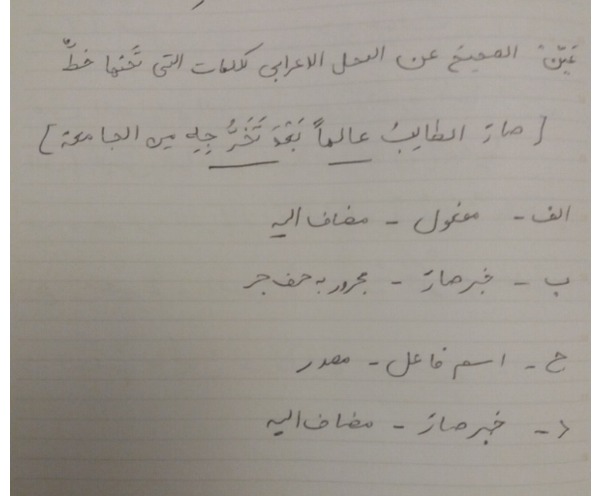 عَيِّنْ الصحيحَ عن المحل الاعرابي لكلمات التي تَحْتَها خطٌّ
[ صارَ الطالِبُ عالِماً بَعْدَ تَخَرُّجِهِ مِن الجامعة ]
الف - مفعول - مضاف اليه
ب - خبر صارَ - مجرور به حرف جر
ج - اسم فاعل - مصدر
د - خبر صارَ - مضاف اليه